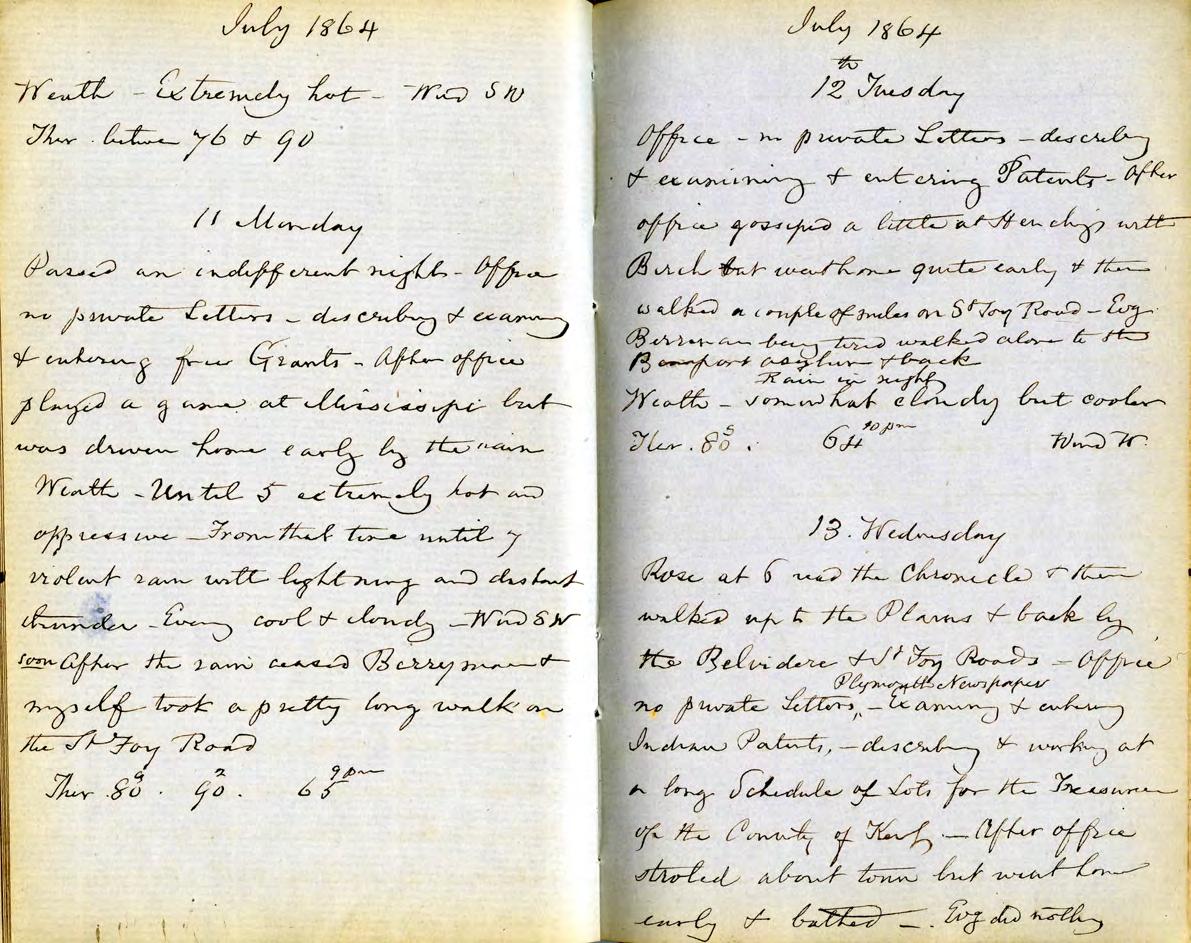 July 1864
Weath - Extremely hot - Wind SW
Ther. between 76 & 90
11 Monday
Passed an indifferent night - Office
no private Letters - describing & examing
& entering free Grants - After office
played a game at Mississipi but
was driven home early by the rain
Weath - Until 5 extremely hot and
oppressive - From that time until 7
violent rain with lightning and distant
thunder - Eveng cool & cloudy - Wind SW
soon After the rain ceased Berryman &
myself took a pretty long walk on
the St Foy Road
Ther. 80 9. 90 2. 65 9 pm
July 1864
12th Tuesday
Office - no private Letters - describing
& examining & entering Patents - After
office gossiped a little at with
Birch but went home quite early & then
walked a couple of miles on St Foy Road - Evg.
Berryman being tired walked alone to the
Beauport asylum & back
Rain in night
Weath - somewhat cloudy but cooler
Ther. 80 5. 64 10 pm Wind W.
13. Wednesday
Rose at 6 read the Chronicle & then
walked up to the Plains & back by
the Belvidere & St Foy Roads - Office
Plymouth Newspaper
no private Letters, - Examing & entering
Indian Patents, - describing & working at
a long Schedule of Lots for the Treasurer
of the County of Kent - After office
stroled about town but went home
early & bathed -. Evg did nothing